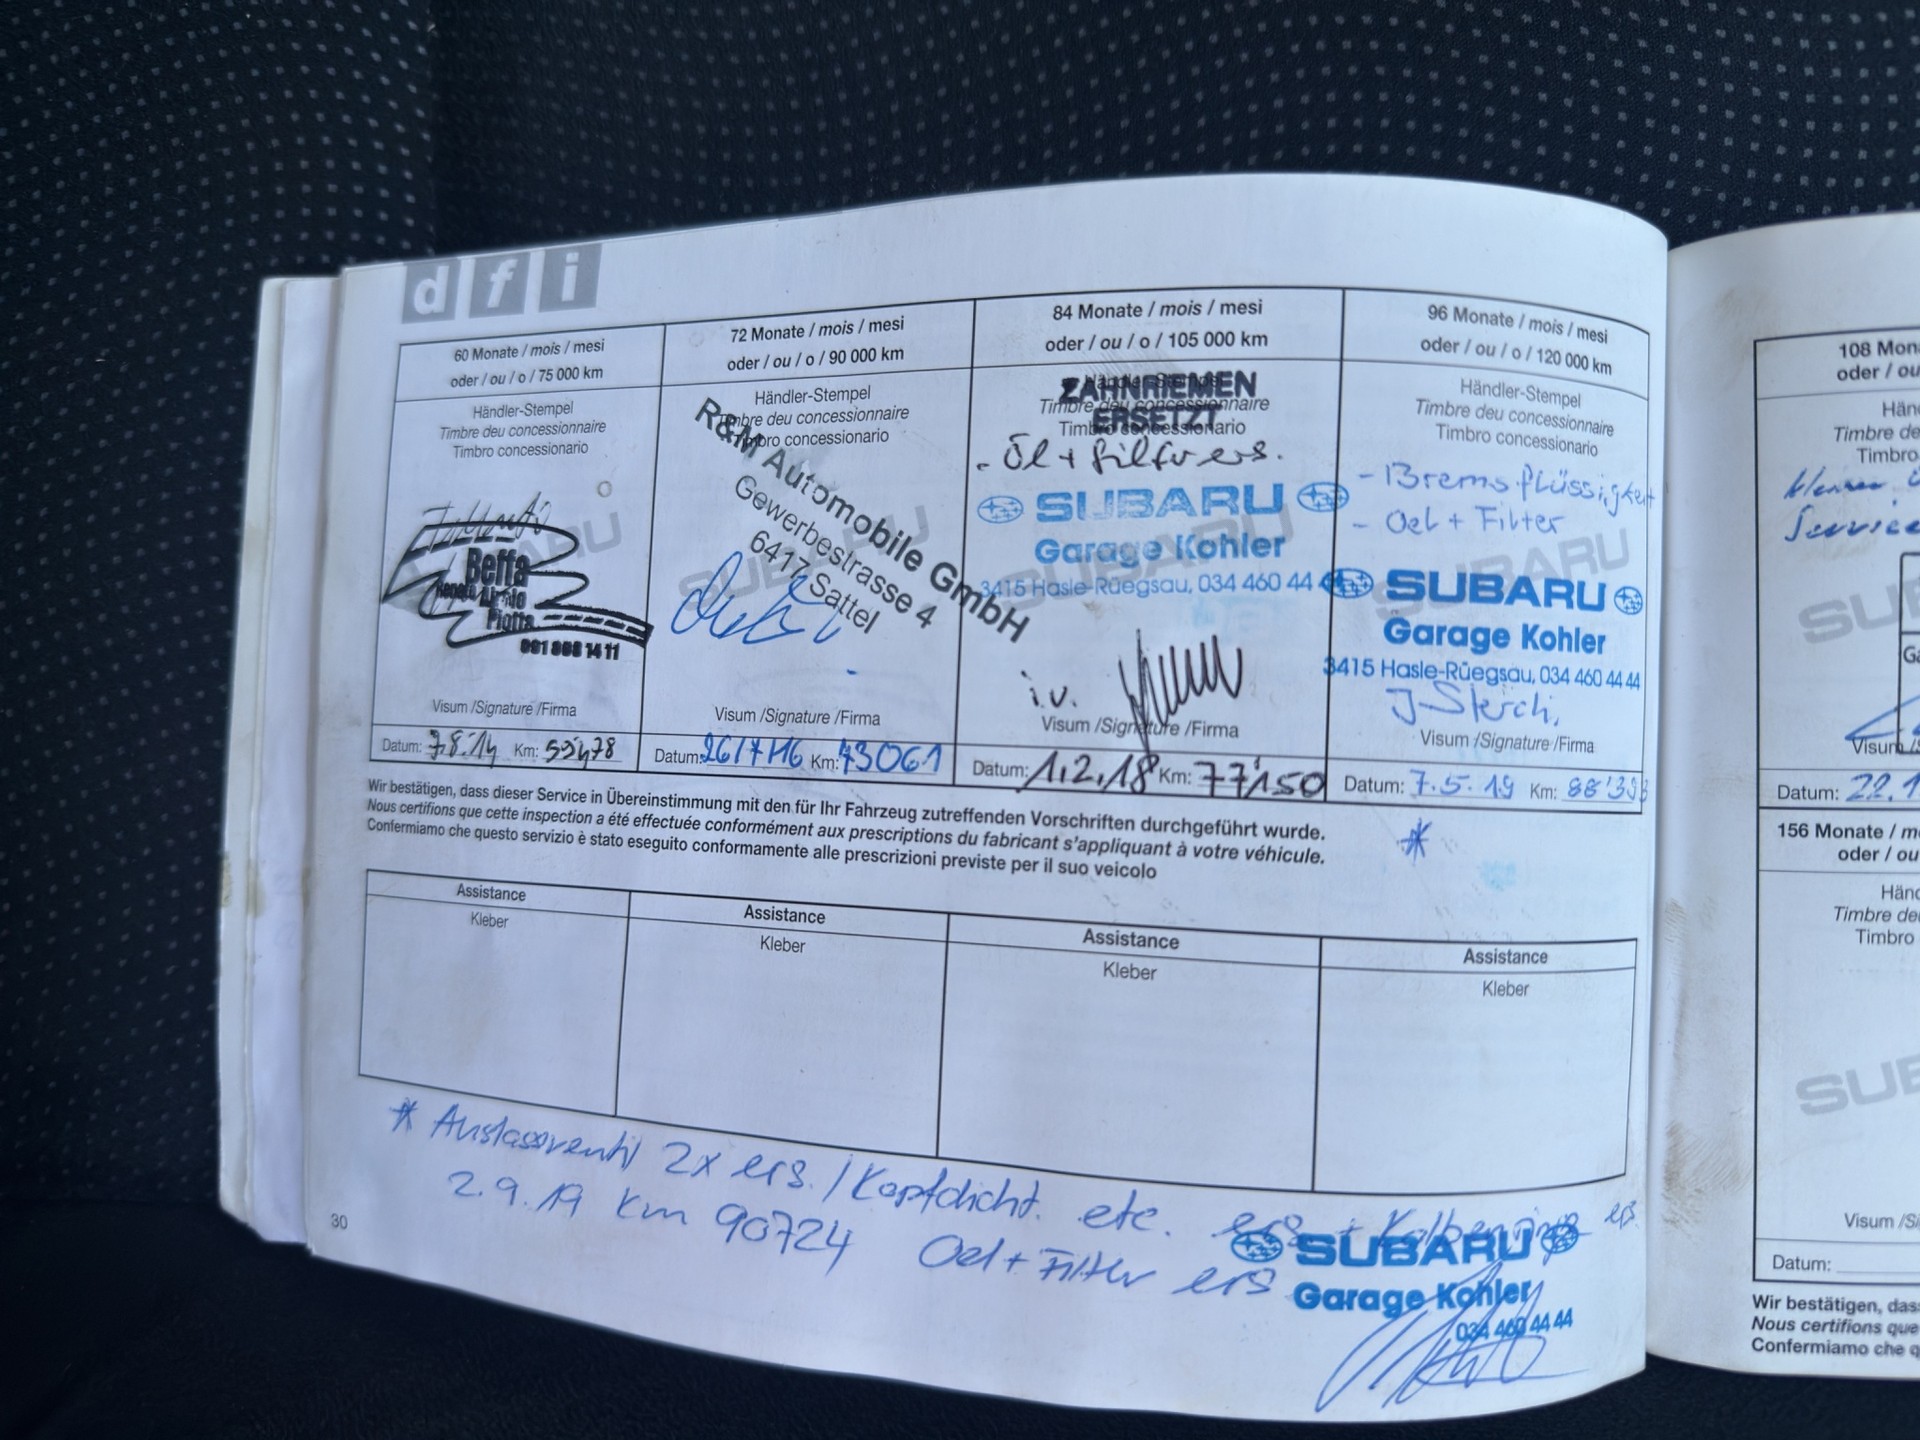 d f i
60 Monate / mois / mesi
oder / ou / o / 75 000 km
Händler-Stempel
Timbre deu concessionnaire
Timbro concessionario
SUBARU
Beffa
Renato
Piotta
091 868 14 11
Visum /Signature /Firma
Datum: 7.8.14 Km: 59'478
72 Monate / mois / mesi
oder / ou / o / 90 000 km
Händler-Stempel
Timbre deu concessionnaire
Timbro concessionario
R&M Automobile GmbH
Gewerbestrasse 4
6417 Sattel
SUBARU
Visum /Signature /Firma
Datum: 26/7/16 Km: 73061
84 Monate / mois / mesi
oder / ou / o / 105 000 km
Händler-Stempel
ZAHNRIEMEN
Timbre deu concessionnaire
ERSETZT
Timbro concessionario
- Öl + Filter ers.
SUBARU
SUBARU
Garage Kohler
3415 Hasle-Rüegsau, 034 460 44
i.v.
Visum /Signature /Firma
Datum: 1.2.18 Km: 77'150
96 Monate / mois / mesi
oder / ou / o / 120 000 km
Händler-Stempel
Timbre deu concessionnaire
Timbro concessionario
- Bremsflüssigkeit
- Oel + Filter
SUBARU
SUBARU
Garage Kohler
3415 Hasle-Rüegsau, 034 460 44 44
Visum /Signature /Firma
Datum: 7.5.19 Km: 88'393
Wir bestätigen, dass dieser Service in Übereinstimmung mit den für Ihr Fahrzeug zutreffenden Vorschriften durchgeführt wurde.
Nous certifions que cette inspection a été effectuée conformément aux prescriptions du fabricant s'appliquant à votre véhicule.
Confermiamo che questo servizio è stato eseguito conformamente alle prescrizioni previste per il suo veicolo
*
Assistance
Kleber
Assistance
Kleber
Assistance
Kleber
Assistance
Kleber
* Auslassventil 2x ers. / Kopfdicht. etc. ers + Kolbenringe ers.
2.9.19 Km 90724 Oel + Filter ers
SUBARU
Garage Kohler
034 460 44 44
30
108 Mon
oder / ou
Hän
Timbre de
Timbro
Service
SUB
Ga
Visum /S
Datum: 22.1
156 Monate / m
oder / ou
Hänc
Timbre de
Timbro
SUB
Visum /Si
Datum:
Wir bestätigen, das
Nous certifions que
Confermiamo che q